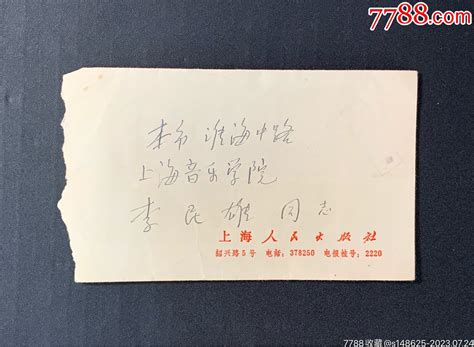 7788.com
本市 淮海中路
上海音乐学院
李民雄 同志
上海人民出版社
绍兴路5号 电话：378250 电报挂号：2220
7788收藏@s148625-2023.07.24